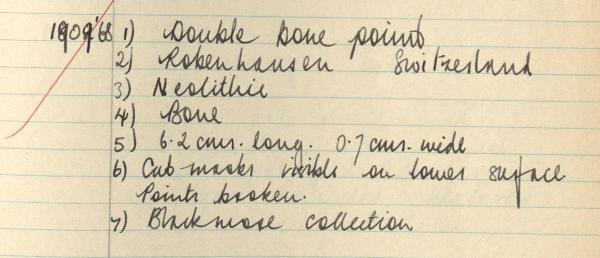 1909'68 1) Double bone point
2) Robenhausen Switzerland
3) Neolithic
4) Bone
5) 6.2 cms. long. 0.7 cms. wide
6) Cut marks visible on lower surface
Points broken.
7) Blackmore collection